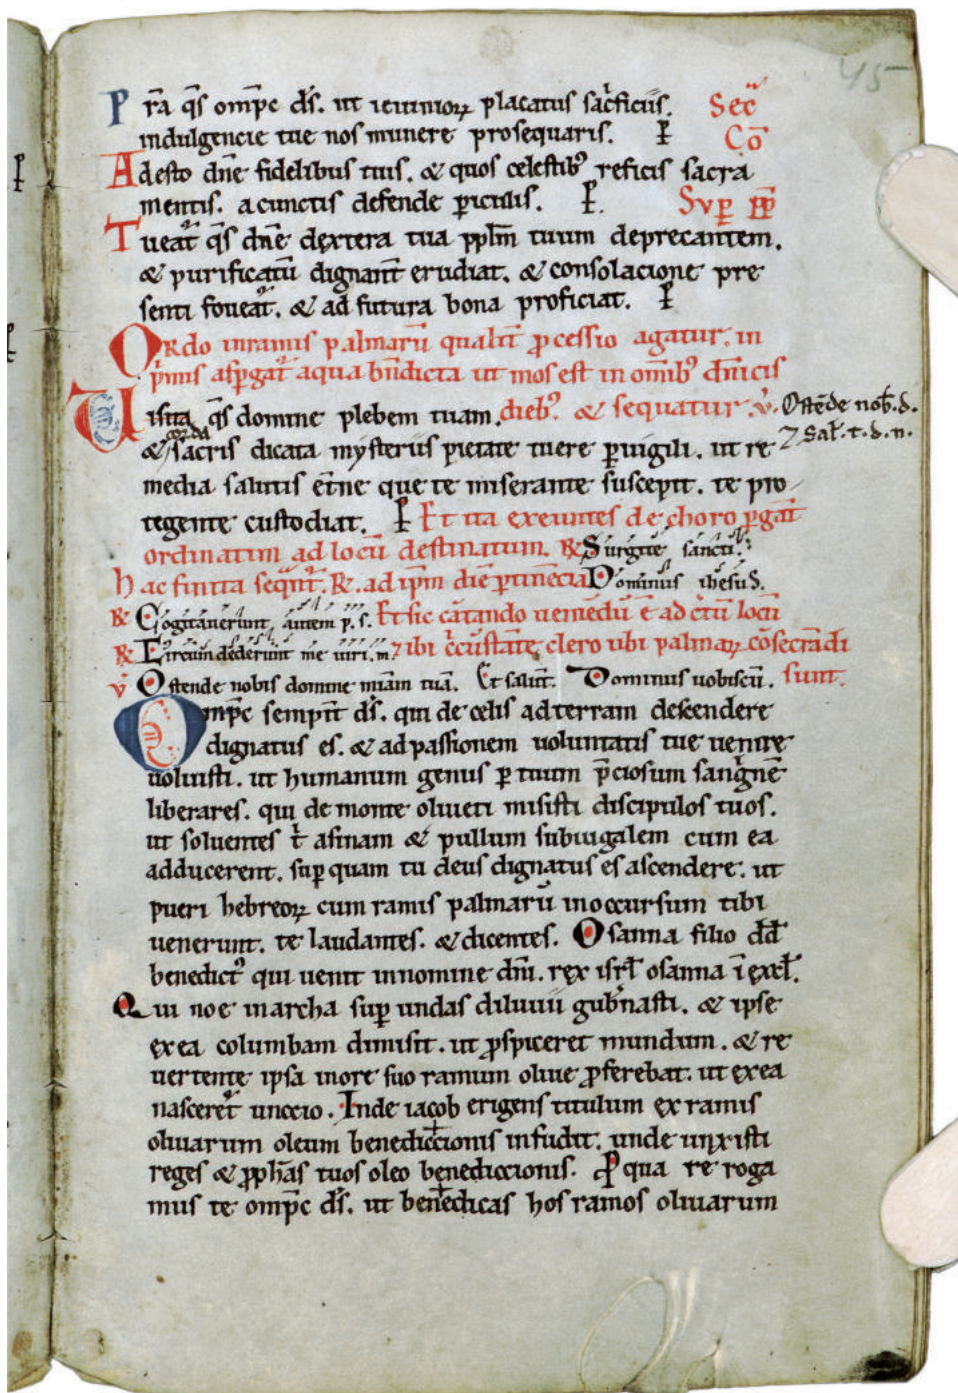 45
Pr̄a q̄s omp̄c d̄s. ut ieiuniorꝝ placatus sacͥficiis. Sec̄
indulgencie tue nos munere prosequaris. P̲ Cō
Adesto dn̄e fidelibus tuis. & quos celestibꝰ reficis sacra
mentis. a cunctis defende ꝑiculis. P̲. Suꝑ pp̄
Tueat᷑ q̄s dn̄e dextera tua ppl̄m tuum deprecantem.
& purificatū dignant̄ erudiat. & consolacione pre
senti foueat᷑. & ad futura bona proficiat. P̲
Ordo in ramis palmarū qualit̄ ꝓcessio agatur. in
pͥmis asꝑgat᷑ aqua bn̄dicta ut mos est in om̄ibꝰ dn̄icis
Uisita q̄s domine plebem tuam. diebꝰ. & sequatur. v̇. Ostēde nob̄. d.
& corda sacris dicata mysteriis pietate tuere ꝑuigili. ut re ⁊ Sal̄. t. d. n.
media salutis et̄ne que te miserante suscepit. te pro
tegente custodiat. P̲ Et ita exeuntes de choro ꝑgāt
ordinatim ad locū destinatum. ℟ Surgite sancti.
hac finita seqͥnt᷑. ℟. ad ip̄m diē ꝑtinēcia Dominus ihesus.
℟ Cogitauerunt autem p. s. Et sic cātando ueniēdū ē ad c̄tū locū
℟ Circumdederunt me uiri. m ⁊ ibi cͥcūstāte clero ubi palmaꝝ cōsecrādi
v̇ Ostende nobis domine mīam tuā. Et salut̄. Dominus uobiscū. sunt.
Omp̄c sempit̄ d̄s. qui de celis ad terram descendere
dignatus es. & ad passionem uoluntatis tue uenire
uoluisti. ut humanum genus ꝑ tuum p̄ciosum sangͥnē
liberares. qui de monte oliueti misisti discipulos tuos.
ut soluentes t̄ asinam & pullum subiugalem cum ea
adducerent. suꝑ quam tu deus dignatus es ascendere. ut
pueri hebreorꝝ cum ramis palmarū in occursum tibi
uenerunt. te laudantes. & dicentes. Osanna filio dd̄
benedictꝰ qui uenit in nomine dn̄i. rex isrl̄ osanna ī excl̄.
Qui noe in archa suꝑ undas diluuii gub̄nasti. & ipse
ex ea columbam dimisit. ut ꝓspiceret mundum. & re
uertente ipsa in ore suo ramum oliue ꝓferebat. ut ex ea
nasceret᷑ unccio. Inde iacob erigens titulum ex ramis
oliuarum oleum benediccionis infudit. unde unxisti
reges & ꝓph̄as tuos oleo benediccionis. Ꝓ qua re roga
mus te omp̄c d̄s. ut benedicas hos ramos oliuarum